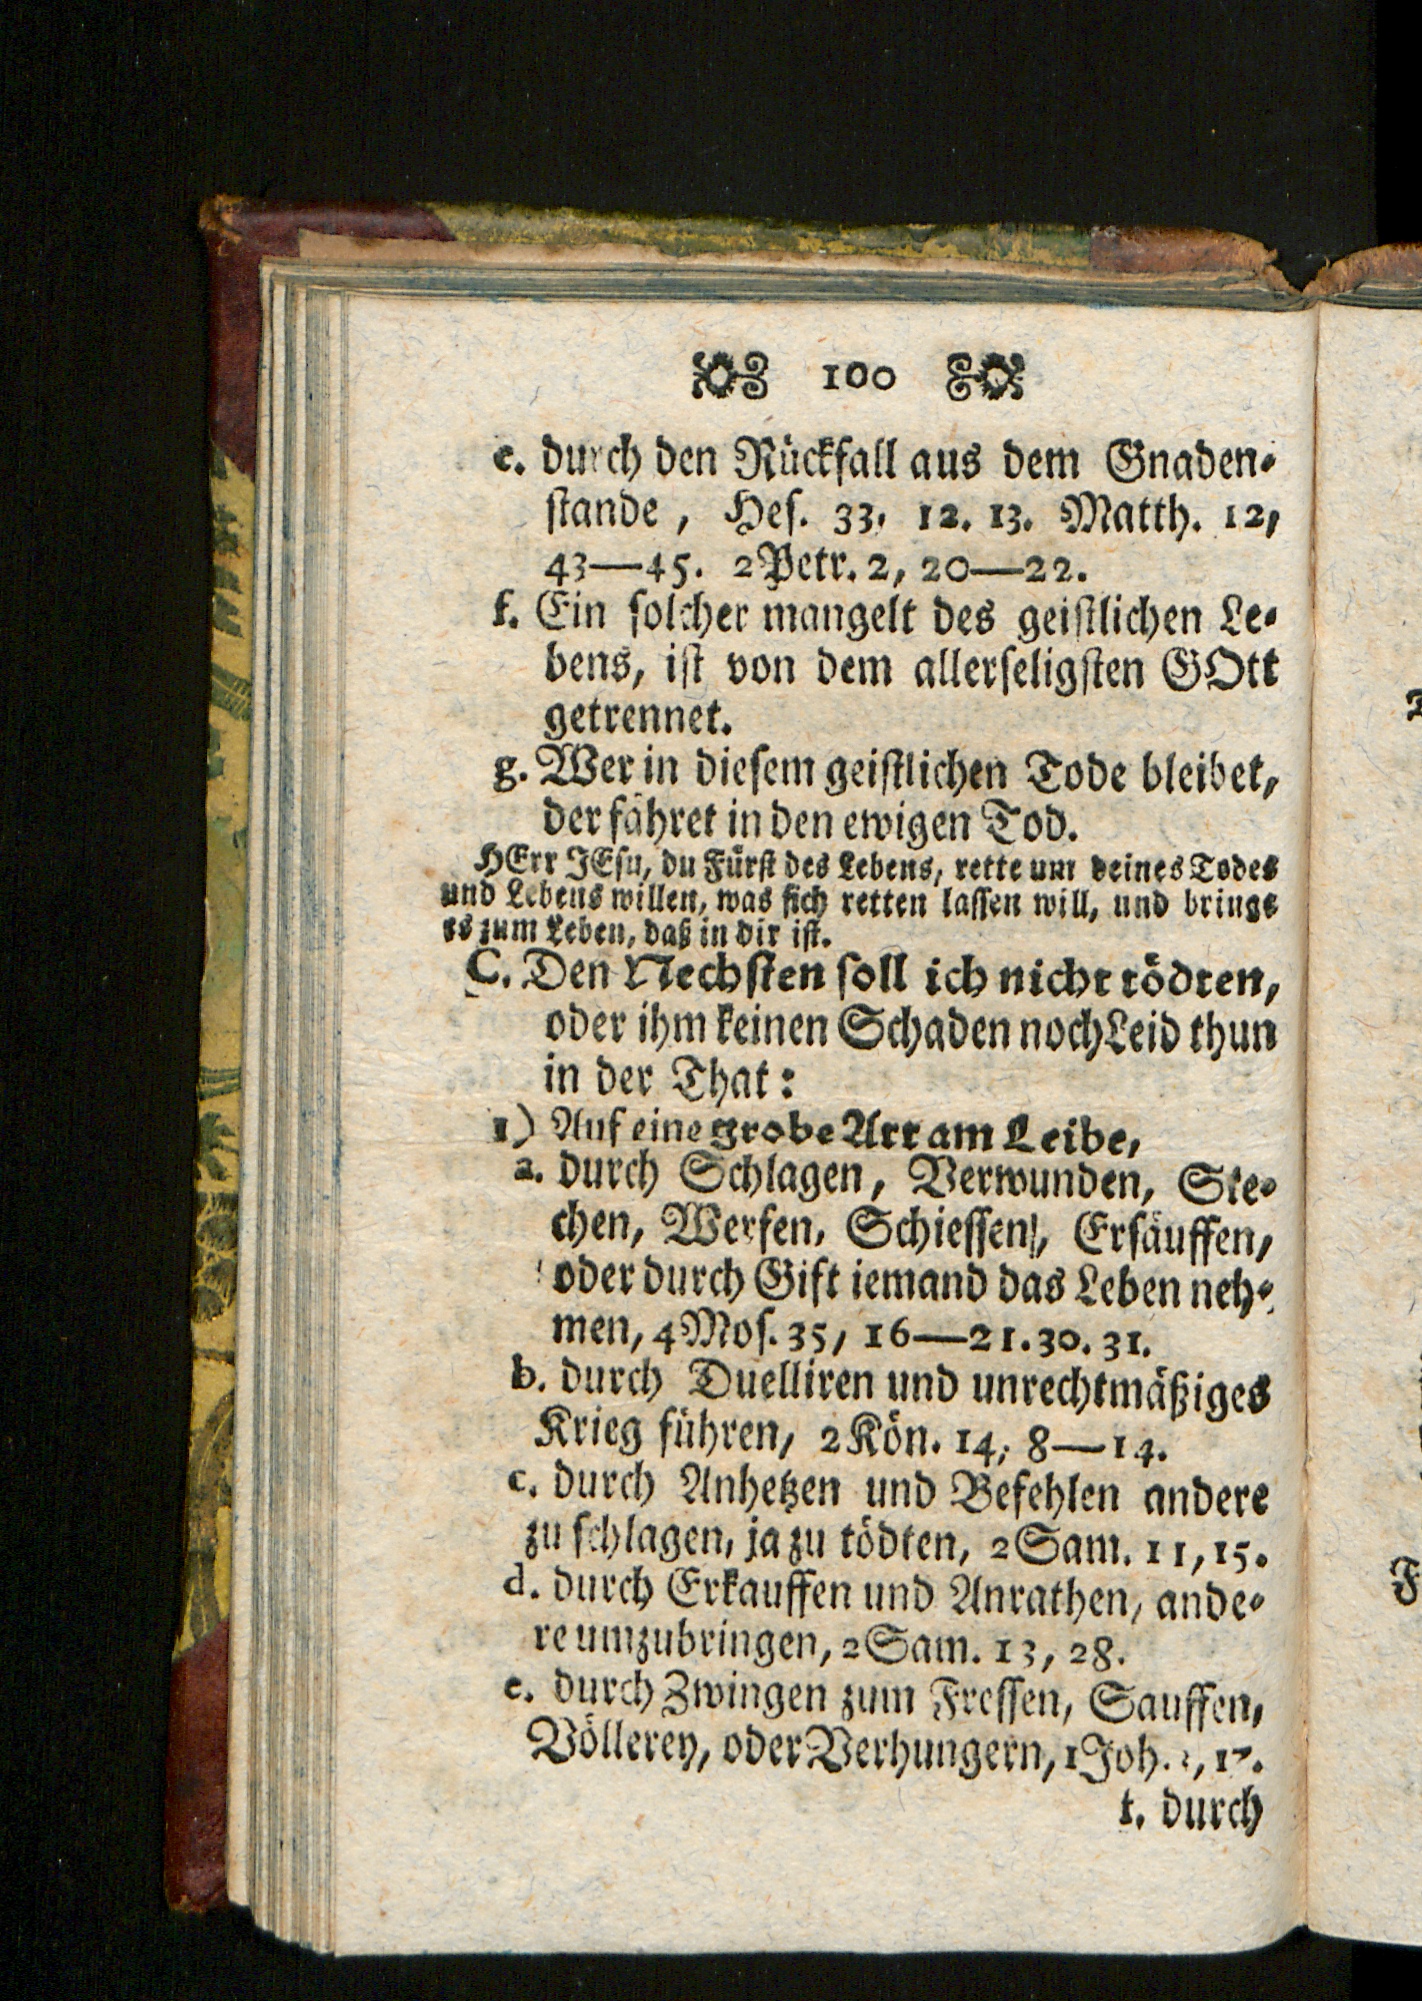 100
e. durch den Rückfall aus dem Gnaden-
stande, Hes. 33, 12. 13. Matth. 12,
43—45. 2 Petr. 2, 20—22.
f. Ein solcher mangelt des geistlichen Le-
bens, ist von dem allerseligsten GOtt
getrennet.
g. Wer in diesem geistlichen Tode bleibet,
der fähret in den ewigen Tod.
HErr JEsu, du Fürst des Lebens, rette um deines Todes
und Lebens willen, was sich retten lassen will, und bringe
es zum Leben, daß in dir ist.
C. Den Nechsten soll ich nicht tödten,
oder ihm keinen Schaden noch Leid thun
in der That:
1) Auf eine grobe Art am Leibe,
a. durch Schlagen, Verwunden, Ste-
chen, Werfen, Schiessen, Ersäuffen,
oder durch Gift iemand das Leben neh-
men, 4 Mos. 35, 16—21. 30. 31.
b. durch Duelliren und unrechtmäßiges
Krieg führen, 2 Kön. 14, 8—14.
c. durch Anhetzen und Befehlen andere
zu schlagen, ja zu tödten, 2 Sam. 11, 15.
d. durch Erkauffen und Anrathen, ande-
re umzubringen, 2 Sam. 13, 28.
e. durch Zwingen zum Fressen, Sauffen,
Völlerey, oder Verhungern, 1 Joh.
f. durch